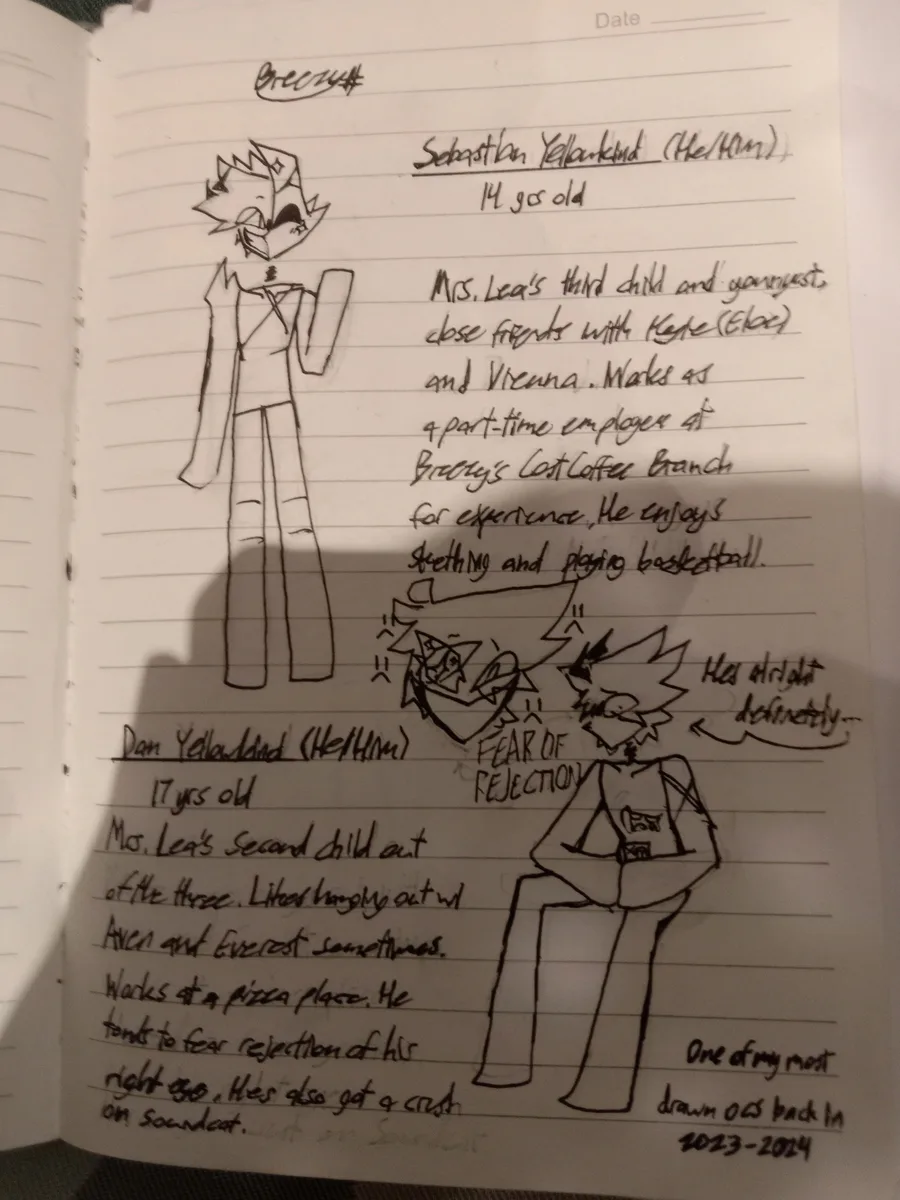 Date
Breezy#
Sebastian Yellowkind (He/Him)
14 yrs old
Mrs. Lea's third child and youngest,
close friends with Kyle (Eloe)
and Vienna. Works as
a part-time employee at
Breezy's LostCoffee Branch
for experience. He enjoys
and playing basketball.
He's alright
definetely...
FEAR OF
REJECTION
Dan Yellowkind (He/Him)
17 yrs old
Mrs. Lea's second child out
of the three. Likes hanging out w/
Aven and Everest sometimes.
Works at a pizza place. He
tends to fear rejection of his
right eye. He's also got a crush
on soundcat.
One of my most
drawn ocs back in
2023-2024